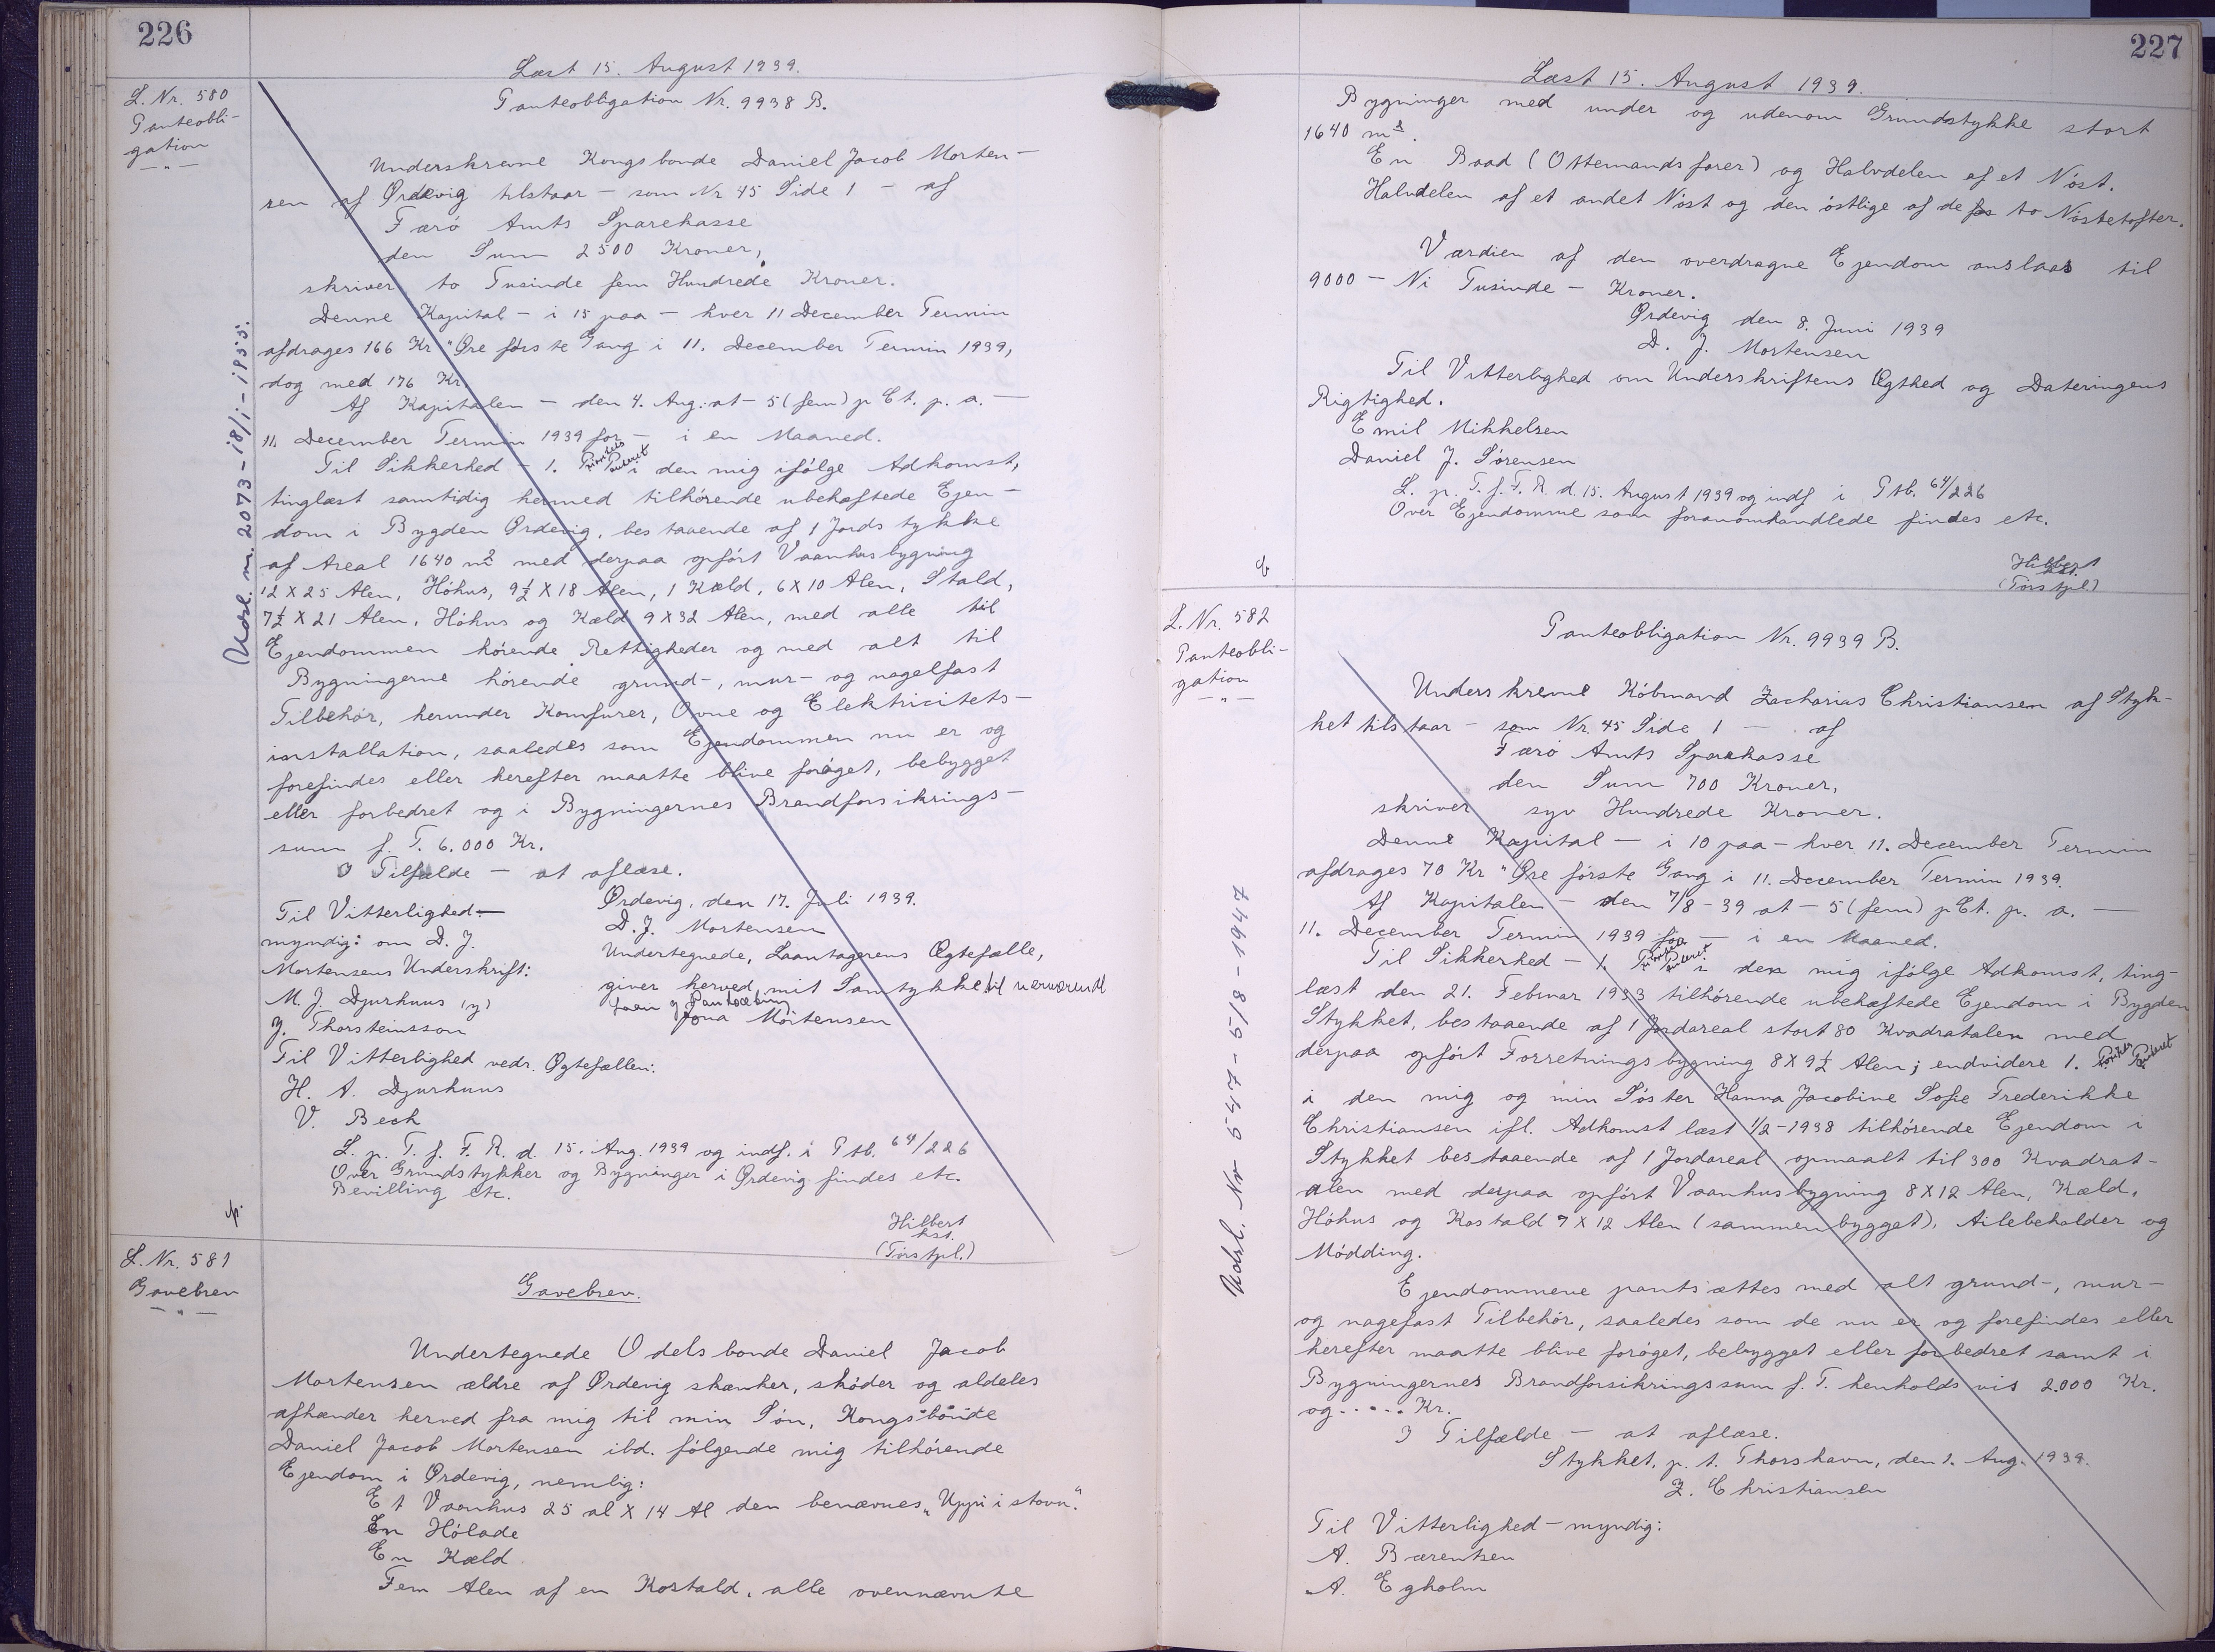 226
Læst 15. August 1939.
L. Nr. 580
Panteobli-
gation
Panteobligation Nr. 9938 B.
Underskrevne Kongsbonde Daniel Jacob Morten-
sen af Ørdevig tilstaar - som Nr 45 Side 1 - af
Færö Amts Sparekasse
den Sum 2500 Kroner,
skriver to Tusinde fem Hundrede Kroner.
Denne Kapital - i 15 paa - hver 11 December Termin
afdrages 166 Kr " Øre förste Gang i 11. December Termin 1939,
dog med 176 Kr.
Af Kapitalen - den 4. Aug. at - 5 (fem) p Ct. p. a. -
11. December Termin 1939 for - i en Maaned.
Til Sikkerhed - 1. Prioritets Panteret i den mig ifölge Adkomst,
tinglæst samtidig hermed tilhörende ubehæftede Ejen-
dom i Bygden Ørdevig, bestaaende af 1 Jordstykke
af Areal 1640 m2 med derpaa opfört Vaanhusbygning
12 X 25 Alen, Höhus, 9½ X 18 Alen, 1 Kæld, 6 X 10 Alen, Stald,
7½ X 21 Alen, Höhus og Kæld 9 X 32 Alen, med alle til
Ejendommen hörende Rettigheder og med alt til
Bygningerne hörende grund-, mur- og nagelfast
Tilbehör, herunder Komfurer, Ovne og Elektricitets-
installation, saaledes som Ejendommen nu er og
forefindes eller herefter maatte blive foröget, bebygget
eller forbedret og i Bygningernes Brandforsikrings-
sum f. T. 6.000 Kr.
I Tilfælde - at aflæse.
Ørdevig, den 17. Juli 1939.
D. J. Mortensen
Til Vitterlighed -
myndig: om D. J.
Mortensens Underskrift:
M. J. Djurhuus (y)
J. Thorsteinsson
Undertegnede, Laantagerens Ægtefælle,
giver herved mit Samtykke til nærværende
Laan og Pantsætning
Jona Mortensen
Til Vitterlighed vedr. Ægtefællen:
H. A. Djurhuus
V. Bech
L. p. T. f. F. R. d. 15. Aug. 1939 og indf. i Ptb. 64/226
Over Grundstykker og Bygninger i Ørdevig findes etc.
Bevilling etc.
Hilbert
kst.
Udsl. nr. 2073 - 18/1 - 1955.
L. Nr. 581
Gavebrev
Gavebrev.
Undertegnede Odelsbonde Daniel Jacob
Mortensen ældre af Ørdevig skænker, sköder og aldeles
afhænder herved fra mig til min Sön, Kongsbonde
Daniel Jacob Mortensen ibd. fölgende mig tilhörende
Ejendom i Ørdevig, nemlig:
Et Vaanhus 25 al X 14 Al den benævnes "Uppi i stovu".
En Hölade
En Kæld
Fem Alen af en Kostald, alle ovennævnte
227
Læst 15. August 1939.
Bygninger med under og udenom Grundstykke stort
1640 m2.
En Baad (Ottemandsfarer) og Halvdelen af et Nöst.
Halvdelen af et andet Nöst og den östlige af de to Nöstetofter.
Værdien af den overdragne Ejendom anslaas til
9000 - Ni Tusinde - Kroner.
Ørdevig den 8. Juni 1939
D. J. Mortensen
Til Vitterlighed om Underskriftens Ægthed og Dateringens
Rigtighed.
Emil Mikkelsen
Daniel J. Sörensen
L. p. T. f. F. R. d. 15. August 1939 og indf i Ptb. 64/226
Over Ejendomme som foranomhandlede findes etc.
Hilbert
kst.
L. Nr. 582
Panteobli-
gation
Panteobligation Nr. 9939 B.
Underskrevne Köbmand Zacharias Christiansen af Styk-
ket tilstaar - som Nr. 45 Side 1 - af
Færö Amts Sparekasse
den Sum 700 Kroner,
skriver syv Hundrede Kroner.
Denne Kapital - i 10 paa - hver 11. December Termin
afdrages 70 Kr " Øre förste Gang i 11. December Termin 1939.
Af Kapitalen - den 7/8-39 at - 5 (fem) p Ct. p. a. -
11. December Termin 1939 for - i en Maaned.
Til Sikkerhed - 1. Prioritets Panteret i den mig ifölge Adkomst, ting-
læst den 21. Februar 1933 tilhörende ubehæftede Ejendom i Bygden
Stykket, bestaaende af 1 Jordareal stort 80 Kvadratalen med
derpaa opfört Forretningsbygning 8 X 9½ Alen; endvidere 1. Prioritets Panteret
i den mig og min Söster Hanna Jacobine Sofie Frederikke
Christiansen ifl. Adkomst læst 1/2-1938 tilhörende Ejendom i
Stykket bestaaende af 1 Jordareal opmaalt til 300 Kvadrat-
alen med derpaa opfört Vaanhusbygning 8 X 12 Alen, Kæld,
Höhus og Kostald 7 X 12 Alen (sammenbygget), Ailebeholder og
Mödding.
Ejendommene pantsættes med alt grund-, mur-
og nagefast Tilbehör, saaledes som de nu er og forefindes eller
herefter maatte blive foröget, bebygget eller forbedret samt i
Bygningernes Brandforsikringssum f. T. henholdsvis 2.000 Kr.
og ..... Kr.
I Tilfælde - at aflæse.
Stykket, p. t. Thorshavn, den 1. Aug. 1939.
Z. Christiansen
Til Vitterlighed - myndig:
A. Bærentsen
A. Egholm
Udsl. Nr 547 - 5/8 - 1947